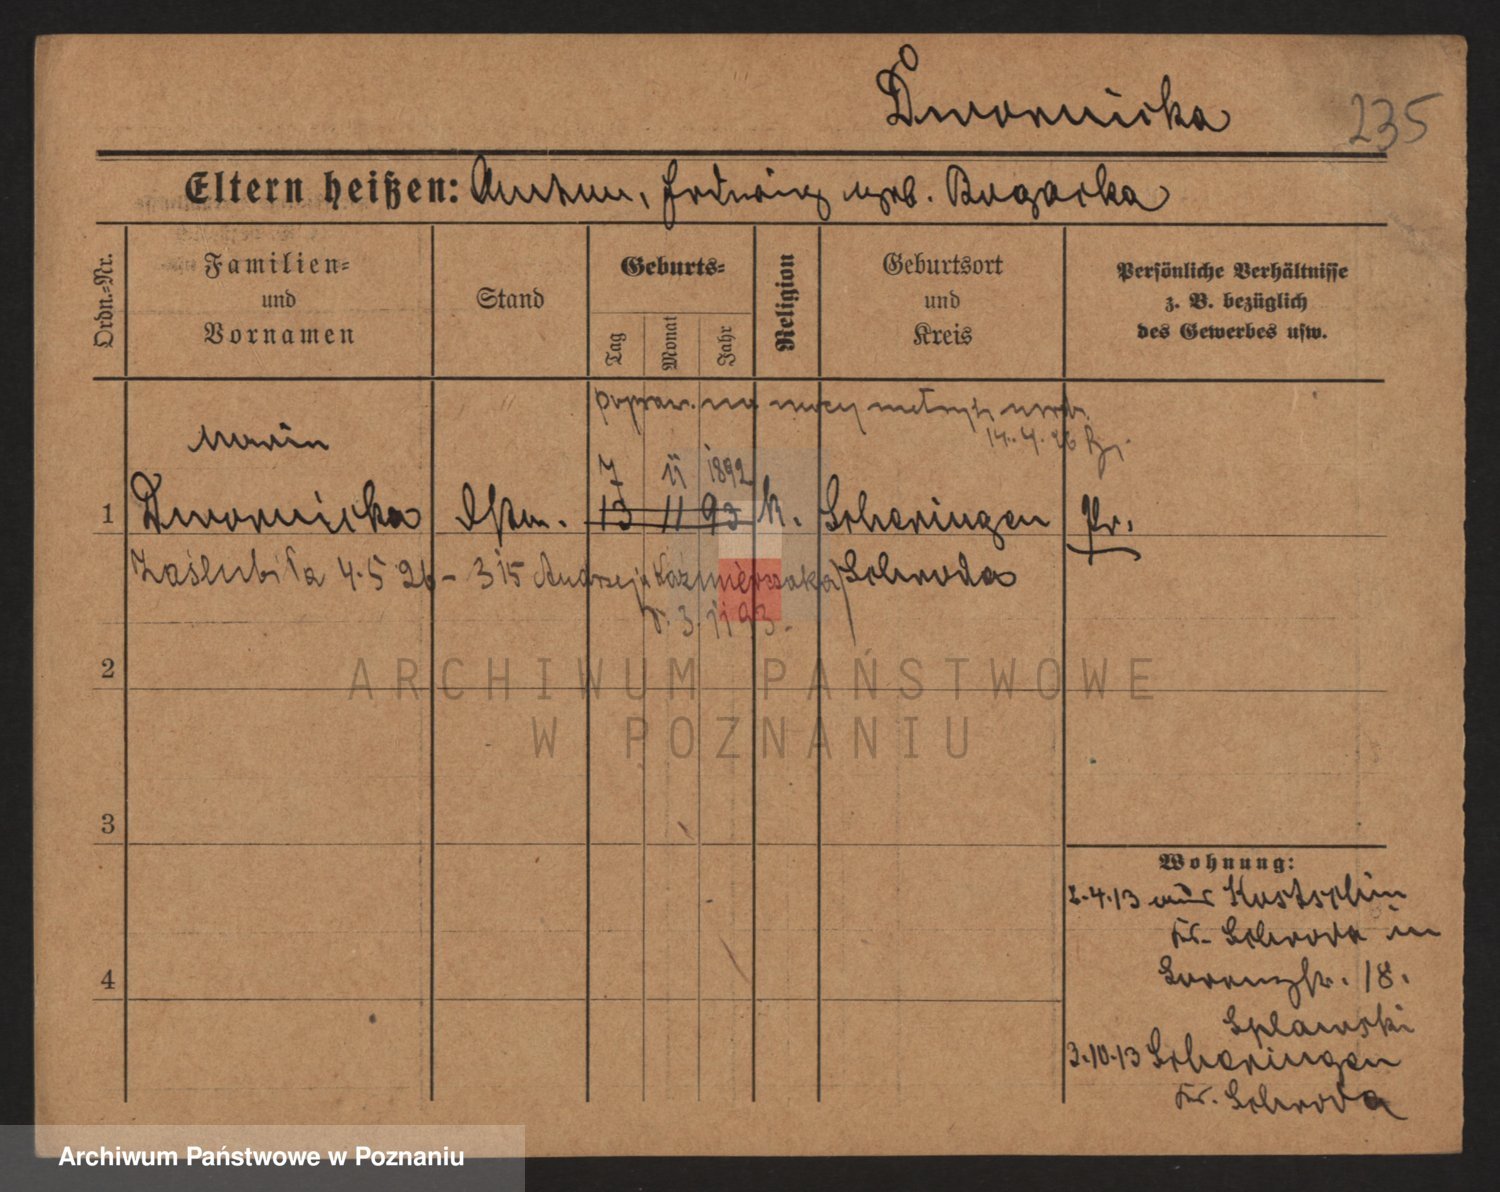 Dwornicka
235
Eltern heißen: Anton, Hedwig geb. Rogacka
Ordn.-Nr.
Familien-
und
Vornamen
Stand
Geburts-
Tag
Monat
Jahr
Religion
Geburtsort
und
Kreis
Persönliche Verhältnisse
z. B. bezüglich
des Gewerbes usw.
popraw. na mocy metryki urodz.
14.4.26
Marie
7 11 1892
1 Dwornicka 13 11 93 k. Scheringen Pr.
Zaślubiła 4.5 26 - 315 Andrzeja Kaźmierczaka Schroda
3.11 93.
2
ARCHIWUM PAŃSTWOWE
W POZNANIU
3
Wohnung:
2.4.13 aus Kostschin
Kr. Schroda in
Lorenzstr. 18.
Splawski
4
3.10.13 Scheringen
Kr. Schroda
Archiwum Państwowe w Poznaniu